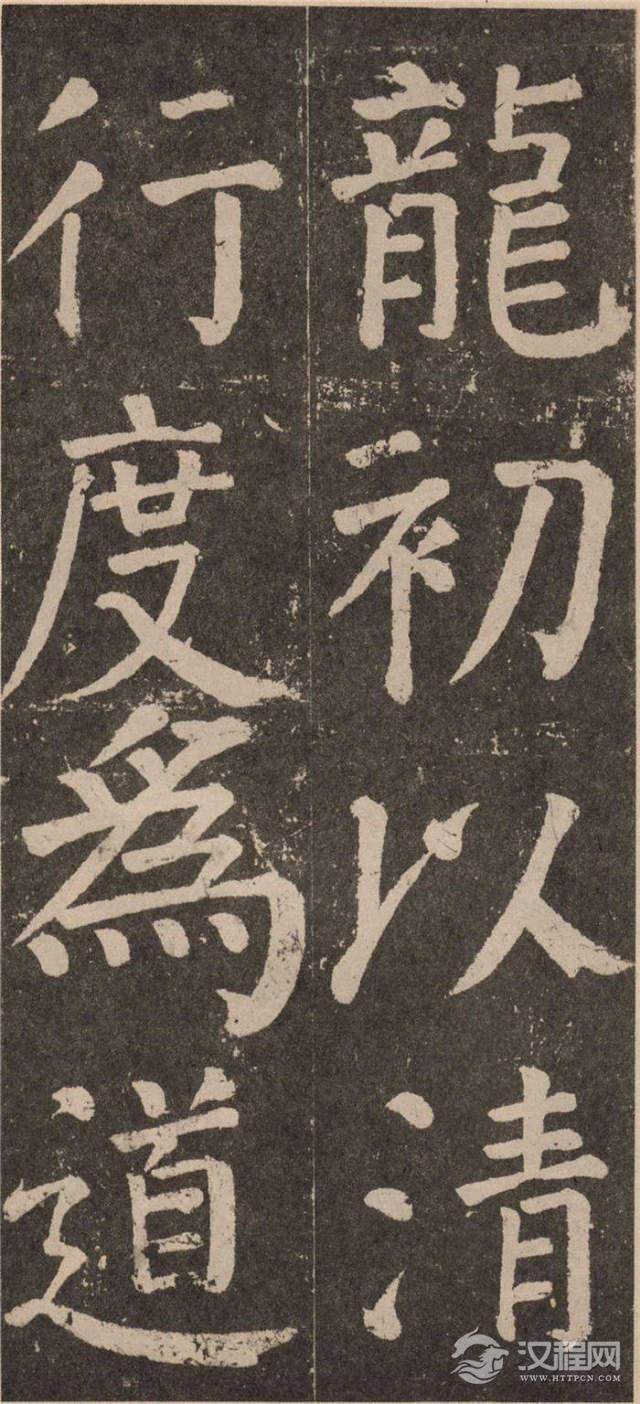 龍初以清
行度為道
汉程网
WWW.HTTPCN.COM